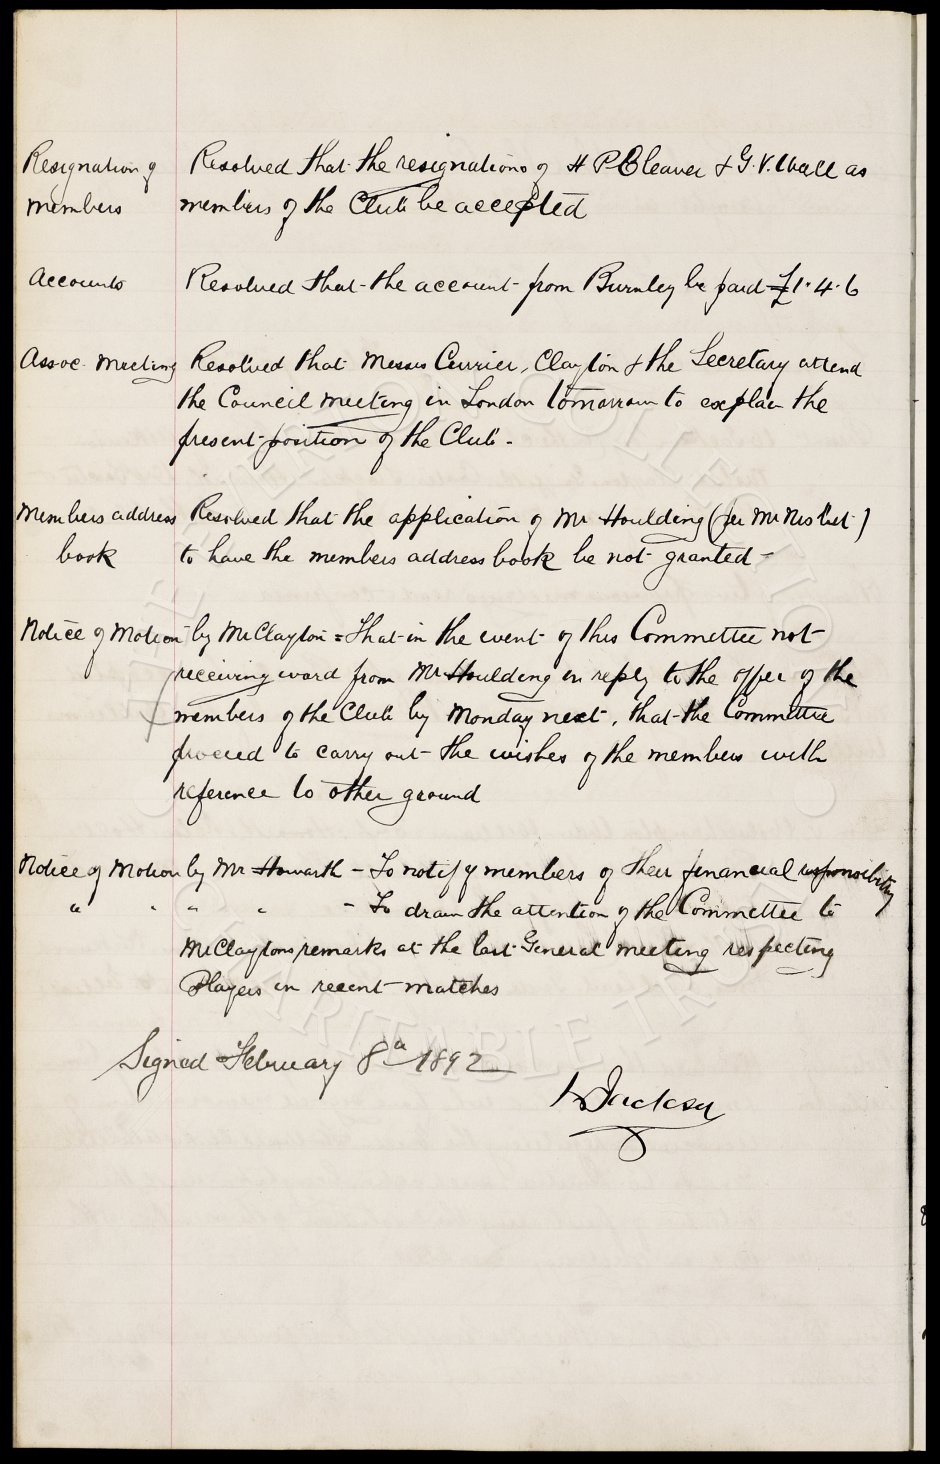 Resignation of Resolved that the resignations of H P Cleaver & G. V. Wall as
Members members of the Club be accepted
Accounts Resolved that the account from Burnley be paid £1.4.6
Assoc. Meeting Resolved that Messrs Currier, Clayton & the Secretary attend
the Council meeting in London tomorrow to explain the
present position of the Club.
Members address Resolved that the application of Mr Houlding (per Mr Nisbet)
book to have the members address book be not granted
Notice of Motion by Mr Clayton = That in the event of this Committee not
receiving word from Mr Houlding in reply to the offer of the
members of the Club by Monday next, that the Committee
proceed to carry out the wishes of the members with
reference to other ground
Notice of Motion by Mr Howarth - To notify members of their financial responsibility
" " " " - To draw the attention of the Committee to
Mr Claytons remarks at the last General meeting respecting
Players in recent matches
Signed February 8th 1892
Jackson
EVERTON COLLECTION
CHARITABLE TRUST